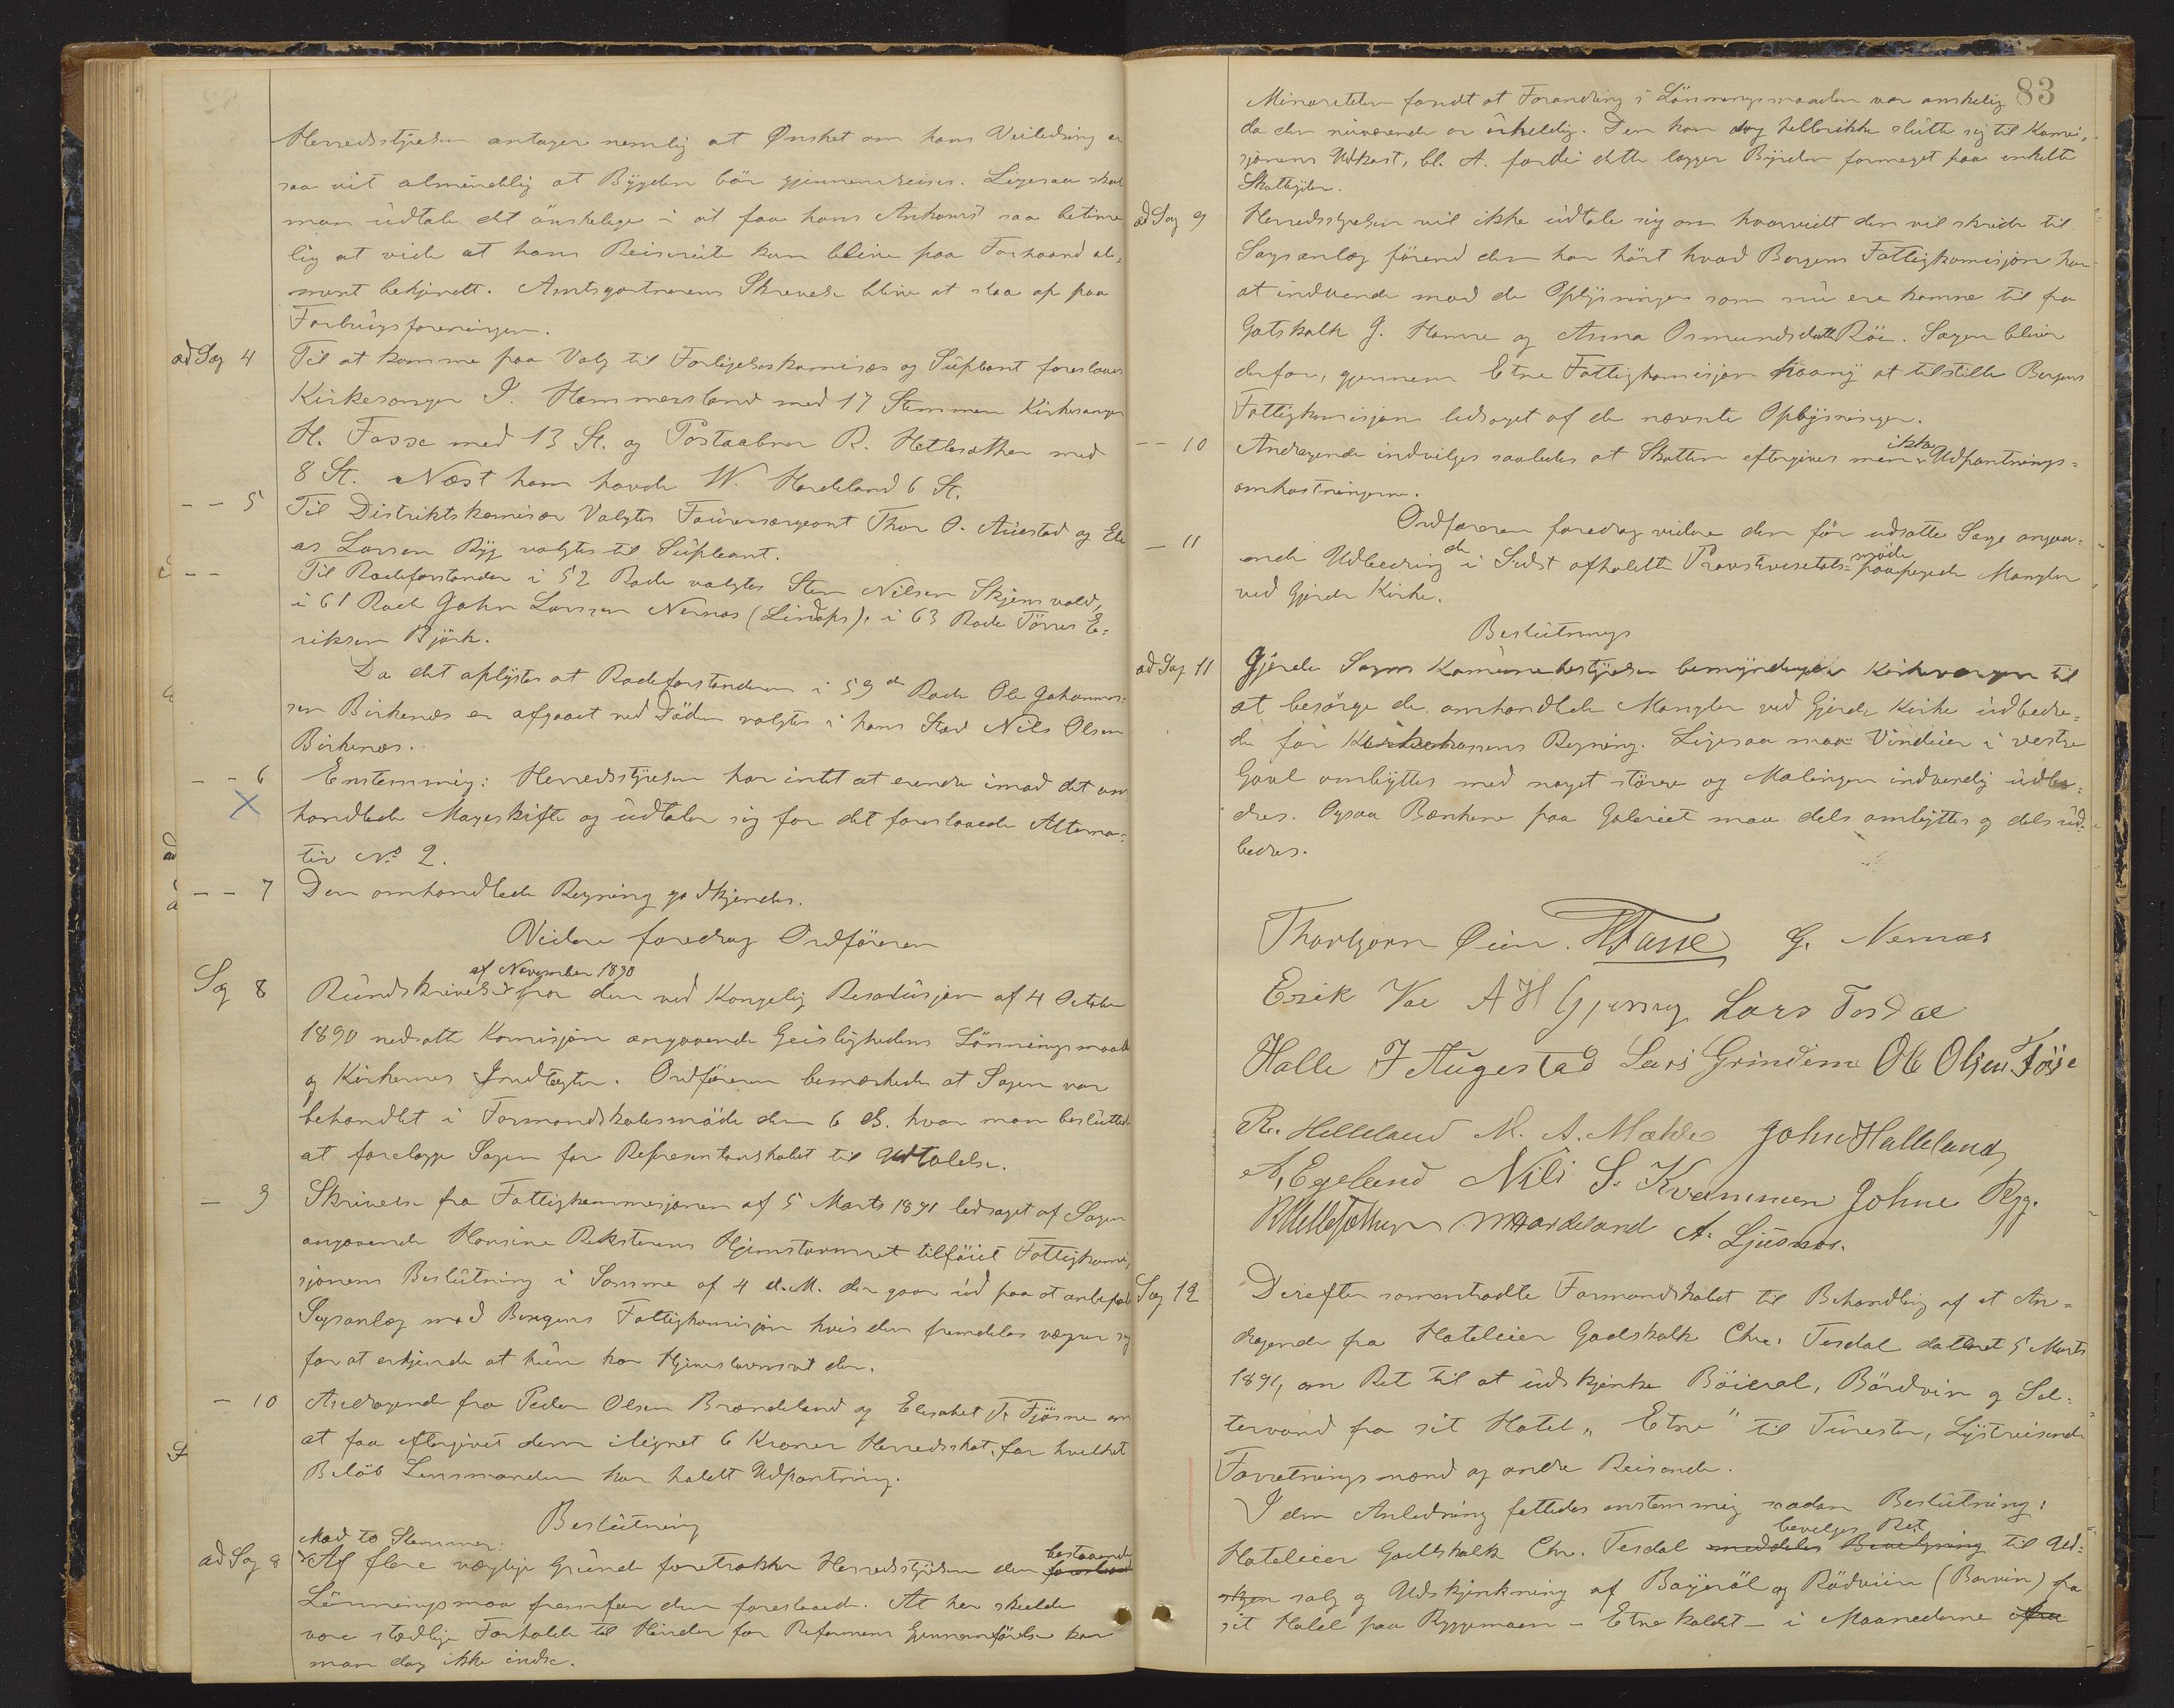 Herredsstyrelsen antager nemlig at Ønsket om hans Veiledning er
saa vit almindelig at Bygden bør gjennemreises. Ligesaa skal
man udtale det ønskelige i at faa hans Ankomst saa betime-
lig at vide at hans Reiserute kan blive paa Forhaand al-
ment bekjendt. Amtsgartnerens Skrivelse bliver at slaa op paa
Forbrugsforeningen.
ad Sag 4 Til at komme paa Valg til Forligelseskomisær og Supleant foreslaaes
Kirkesanger I. Hammersland med 17 Stemmer Kirkesanger
H. Fasse med 13 St. og Postaabner R. Hetlesæther med
8 St. Næst ham havde W. Hardeland 6 St.
— — 5 Til Distriktskomisær Valgtes Fourersergeant Thor O. Austad og Eli
as Larsen Ryg valgtes til Supleant.
— — Til Rodeforstander i 52 Rode valgtes Sten Nilsen Skjensvold,
i 61 Rode John Larssen Nernæs (Lindaks), i 63 Rode Tørres E-
riksen Bjørk.
Da det oplystes at Rodeforstanderen i 59de Rode Ole Johannes-
sen Birkenes er afgaaet ved Døden valgtes i hans Sted Nils Olsen
Birkenæs.
— — 6 Enstemmig: Herredsstyrelsen har intet at erindre imod det om-
handlede Mageskifte og udtaler sig for det foreslaaede Alterna-
tiv No 2.
— — 7 Den omhandlede Regning godkjendes.
Videre foredrog Ordføreren
af November 1890
Sag 8 Rundskrivelse fra den ved Kongelig Resolusjon af 4 October
1890 nedsatte Komisjon angaaende Geistlighedens Lønningsmaade
og Kirkernes Indtægter. Ordføreren bemærkede at Sagen var
behandlet i Formandskabsmøde den 6 ds. hvor man besluttede
at forelægge Sagen for Representanskabet til Udtalelse.
— 9 Skrivelse fra Fattigkommisjonen af 5 Marts 1891 ledsaget af Sagen
angaaende Hansine Rekstens Hjemstavnsret tilføiet Fattigkomi-
sjonens Beslutning i Samme af 4 d.M. der gaar ud paa at anbefale
Sagsanlæg mod Bergens Fattigkomisjon hvis den fremdeles vægrer sig
for at erkjende at hun har Hjemstavnsret der.
— 10 Andragende fra Peder Olsen Brændeland og Elisabet T. Fjøsne om
at faa eftergivet dem ilignet 6 Kroner Herredsskat, for hvilket
Beløb Lensmanden har holdt Udpantning.
Beslutning
Mod to Stemmer:
bestaaende
ad Sag 8 Af flere vægtige Grunde foretrækker Herredsstyrelsen den
Lønningsmaa fremfor den foreslaaede. At her skulde
være stedlige Forholde til Hinder for Reformens Gjennemførelse kan
man dog ikke indse.
83
Minoriteten fandt at Forandring i Lønningsmaaden var ønskelig
da den nuværende er uheldig. Den kan dog hellerikke slutte sig til Komi-
sjonens Udkast, bl. A. fordi dette lægger Byrden formeget paa enkelte
Skatteyder.
ad Sag 9 Herredsstyrelsen vil ikke udtale sig om hvorvidt den vil skride til
Sagsanlæg førend den har hørt hvad Bergens Fattigkomisjon har
at indvende mod de Oplysninger som nu ere komne til fra
Gotskalk G. Hamre og Anna Osmundsdatter Røe. Sagen bliver
derfor, gjennem Etne Fattigkomisjon paany at tilstille Bergens
Fattigkomisjon ledsaget af de nævnte Oplysninger.
— — 10 Andragende indvilges saaledes at Skatten eftergives men ikke Udpantnings-
omkostningerne.
Ordføreren foredrog videre den før udsatte Sag angaa-
— 11 ende Udbedring de i Sidst afholdte Provstevisitats- møde paapegede Mangler
ved Gjerde Kirke.
Beslutning
ad Sag 11 Gjerde Sogns Komunebestyrelse bemyndiger Kirkevergen til
at besørge de omhandlede Mangler ved Gjerde Kirke udbedre-
de for Kirkekassens Regning. Ligesaa maa Vinduer i vestre
Gavl ombyttes med noget større og Malingen indvendig udbe-
dres. Ogsaa Bænkene paa Galeriet maa dels ombyttes og dels ud-
bedres.
Thorbjørn Øien. HFasse G. Nernæs
Erik Vae A H Gjerning Lars Tesdal
Halle J Augestad Lars Grindeim Ole Olsen Fosse
R. Helleland M. A. Mæhle John Halleland
A. Egeland Nils S. Kvammen Johne Ryg.
RHetlesæther WHardeland A. Ljusnæs.
Sag 12 Derefter sammentraadte Formandskabet til Behandling af et An-
dragende fra Hoteleier Godskalk Chr. Tesdal dateret 5 Marts
1891, om Ret til at udskjænke Bøierøl, Bordvin og Sel-
tervand fra sit Hotel "Etne" til Turester, Lystreisende
Forretningsmænd og andre Reisende.
I den Anledning fattedes enstemmig saadan Beslutning:
bevilges Ret
Hoteleier Godskalk Chr. Tesdal meddeles Bevilgning til Ud-
salg og Udskjænkning af Bayerøl og Rødviin (Bærvin) fra
sit Hotel paa Ryggemoen – Etne kaldet – i Maanederne fra